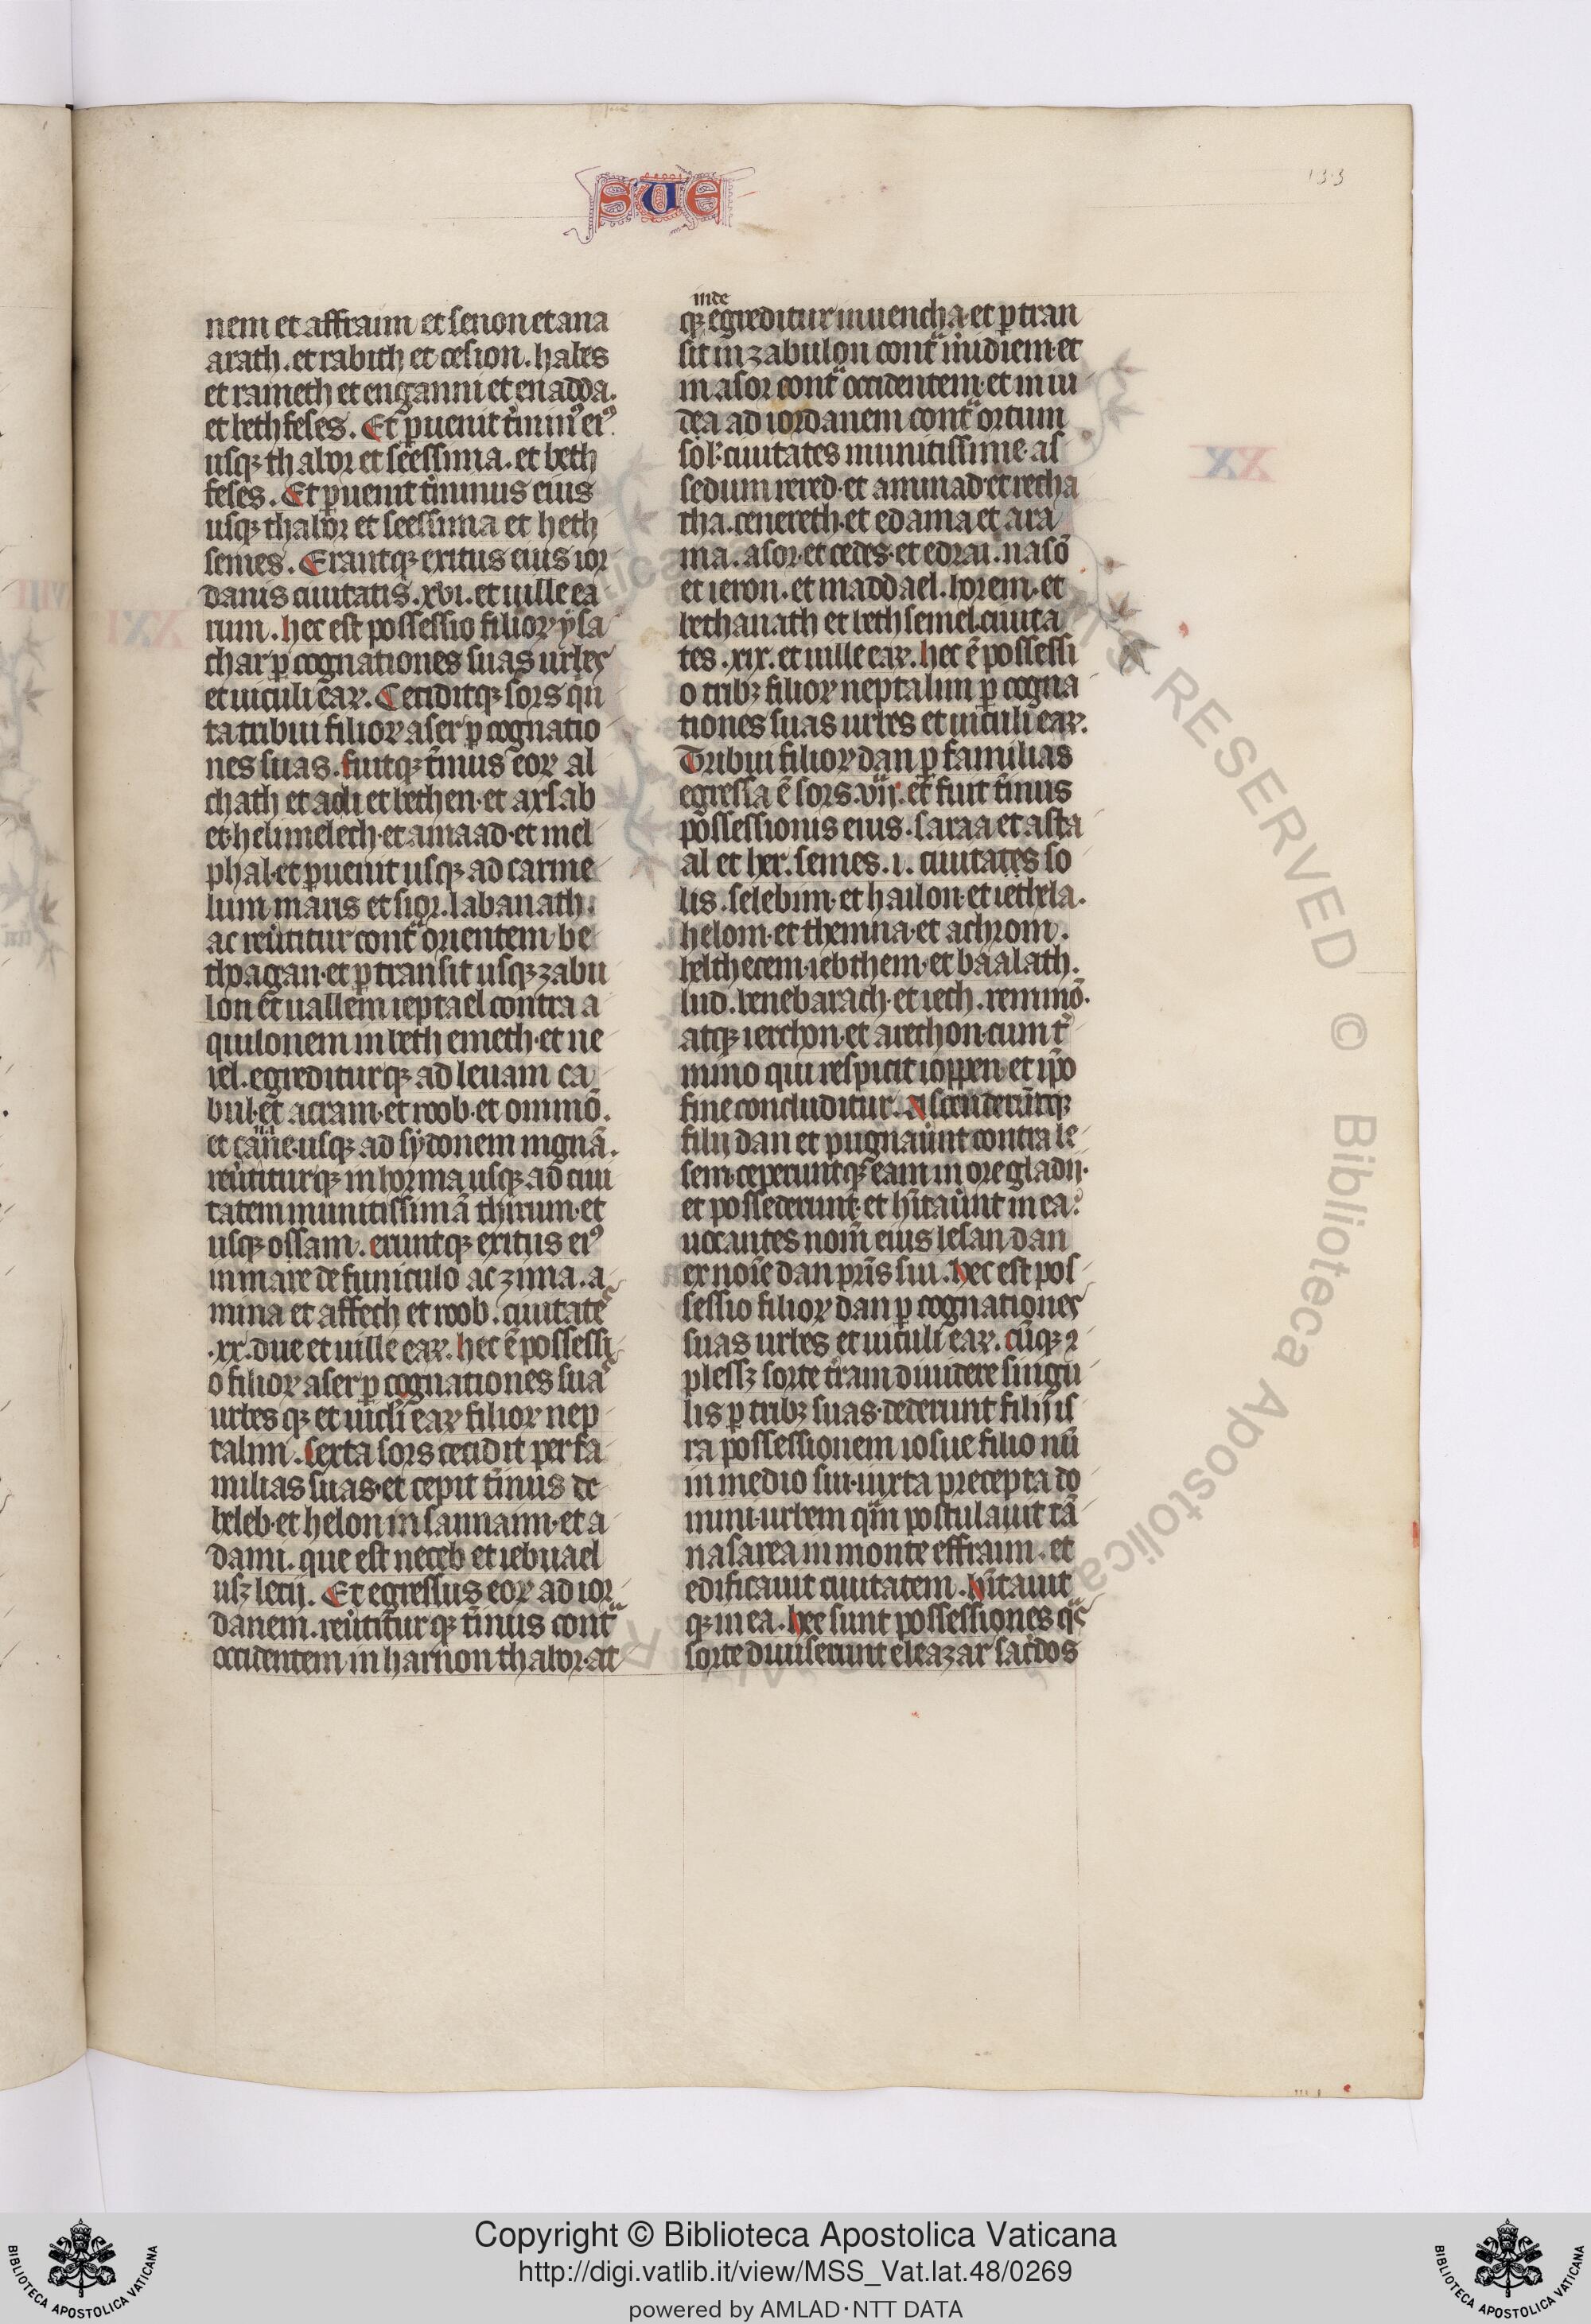 SUE
133
nem et affraim et seon et ana
arath . et rabith et cesion . habes
et rameth et enganni et enadda .
et beth feses . Et puenit t̾minꝰ eiꝰ
usqꝫ thabor et seessima . et beth
feses . Et puenit t̾minus eius
usqꝫ thabor et seessima et heth
semes . Erantqꝫ exitus eius ior
danis ciuitatis . xvi . et uille ea
rum . hec est possessio filioꝝ ysa
char ꝑ cognationes suas urbes
et uiculi eaꝝ . Ceciditqꝫ sors qⁱn
ta tribui filioꝝ aser ꝑ cognatio
nes suas . fuitqꝫ t̾minus eoꝝ al
chath et adi et bethen . et axsab
et helimelech . et amaad . et mel
phal . et ꝑuenit usqꝫ ad carme
lum maris et sior . labanath .
ac reu̾titur contᵃ orientem be
thdagan . et ꝑtransit usqꝫ zabu
lon et uallem ieptael contra a
quilonem in beth emeth . et ne
iel . egrediturqꝫ ad leuam ca
bul . et acram . et roob . et ommō .
et cane . usqꝫ ad sydonem mgnā .
reu̾titurqꝫ in horma usqꝫ ad ciui
tatem munitissimā thirum . et
usqꝫ ossam . eruntqꝫ exitus eiꝰ
in mare de funiculo aczima . a
mina et affech et roob . ciuitates
. xx . due et uille eaꝝ . hec ē possessi
o filioꝝ aser ꝑ cognationes suas
urbes qꝫ et uicl̄i eaꝝ filioꝝ nep
talim . sexta sors cecidit per fa
milias suas . et cepit t̾minus de
beleb . et helon in sannanim . et a
dami . que est neceb et iebnael
usqꝫ lecij . Et egressus eoꝝ ad ior
danem . reu̾titurqꝫ t̾minus contᵃ
occidentem in harnon thabor . at
inde
qꝫ egreditur in uencha . et ꝑtran
sit in zabulon contᵃ m̾idiem . et
in asor contᵃ occidentem . et in iu
dea ad iordanem contᵃ ortum
sol̾ . ciuitates munitissime . as
sedum rered . et aminad et recha
tha . cenereth . et edama et ara
ma . asor . et cedes . et edrai . nasō
et ieron . et maddael . horem . et
bethanath et beth semel . ciuita
tes . xix . et uille eaꝝ . hec ē possessi
o tribꝫ filioꝝ neptalim ꝑ cogna
tiones suas urbes et uiculi eaꝝ .
Tribui filioꝝ dan ꝑ familias
egressa ē sors . vij . et fuit t̾minus
possessionis eius . saraa et asta
al et her . semes . i . ciuitates so
lis . selebim . et hailon . et iethela .
helom . et themna . et achrom .
belthecem . iebthem . et baalath .
iud . benebarach . et ieth . remmō .
atqꝫ ierchon . et arethon . cum t̾
mino qui respicit ioppen . et ip̄o
fine concluditur . Ascenderūtqꝫ
filij dan et pugnau̾unt contra le
sem . ceperuntqꝫ eam in ore gladij .
et possederunt . et hītau̾unt in ea .
uocantes nom̄ eius lesan dan
ex noīe dan pr̄is sui . hec est pos
sessio filioꝝ dan ꝑ cognationes
suas urbes et uiculi eaꝝ . cūqꝫ ꝯ
plessꝫ sorte t̾ram diuidere singu
lis ꝑ tribꝫ suas . dederunt filij is
ra possessionem iosue filio nū
in medio sui . iuxta precepta do
mini . urbem qᵃm postulauit tā
nasarea in monte effraim . et
edificauit ciuitatem . hītauit
qꝫ in ea . hee sunt possessiones qᵃs
sorte diuiserunt eleazar sac̾dos
RESERVED © Biblioteca Apostolica
Copyright © Biblioteca Apostolica Vaticana
http://digi.vatlib.it/view/MSS_Vat.lat.48/0269
powered by AMLAD·NTT DATA
BIBLIOTECA APOSTOLICA VATICANA
BIBLIOTECA APOSTOLICA VATICANA